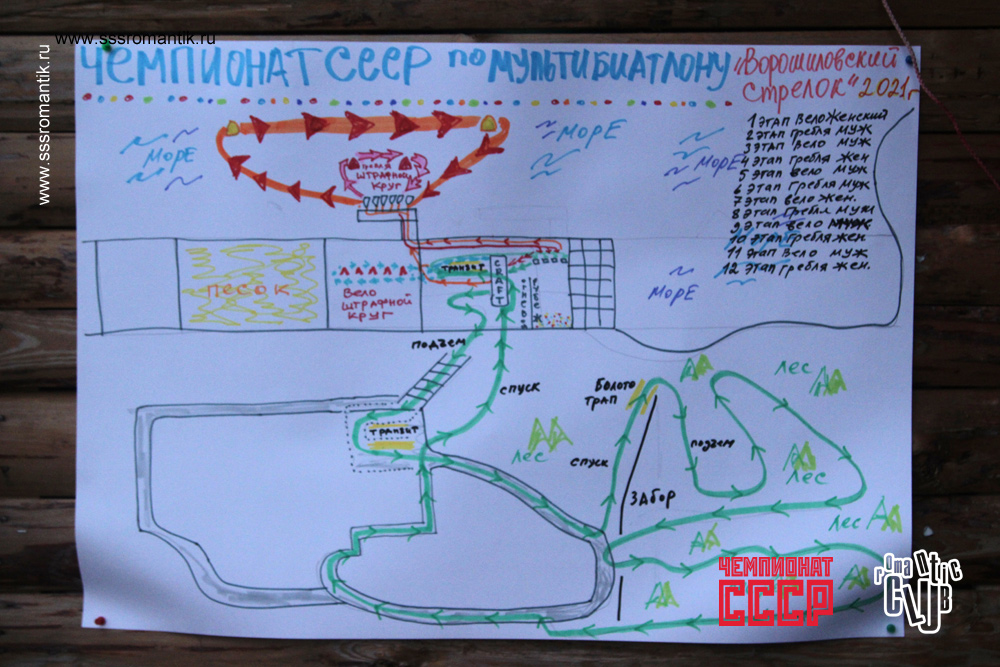 www.sssromantik.ru
www.sssromantik.ru
ЧЕМПИОНАТ СССР по МУЛЬТИБИАТЛОНУ
"Ворошиловский
стрелок" 2021г
1 этап Вело Женский
2 этап Гребля МУЖ
3 этап Вело МУЖ
4 этап Гребля Жен
5 этап вело МУЖ
6 этап Гребля МУЖ
7 этап вело Жен.
8 этап Гребля МУЖ
9 этап вело
10 этап Гребля Жен.
11 этап Вело МУЖ
12 этап Гребля Жен.
МОРЕ
МОРЕ
МОРЕ
МОРЕ
ШТРАФНОЙ
КРУГ
ПЕСОК
Вело
ШТРАФНОЙ
КРУГ
ТРАНЗИТ
CRAFT
ПОДЪЕМ
СПУСК
ТРАНЗИТ
Болото
ТРАП
СПУСК
подъем
ЗАБОР
ЛЕС
ЛЕС
ЛЕС
ЛЕС
ЧЕМПИОНАТ
СССР
romantic
CLUB